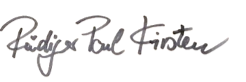 Rüdiger Paul Kirsten